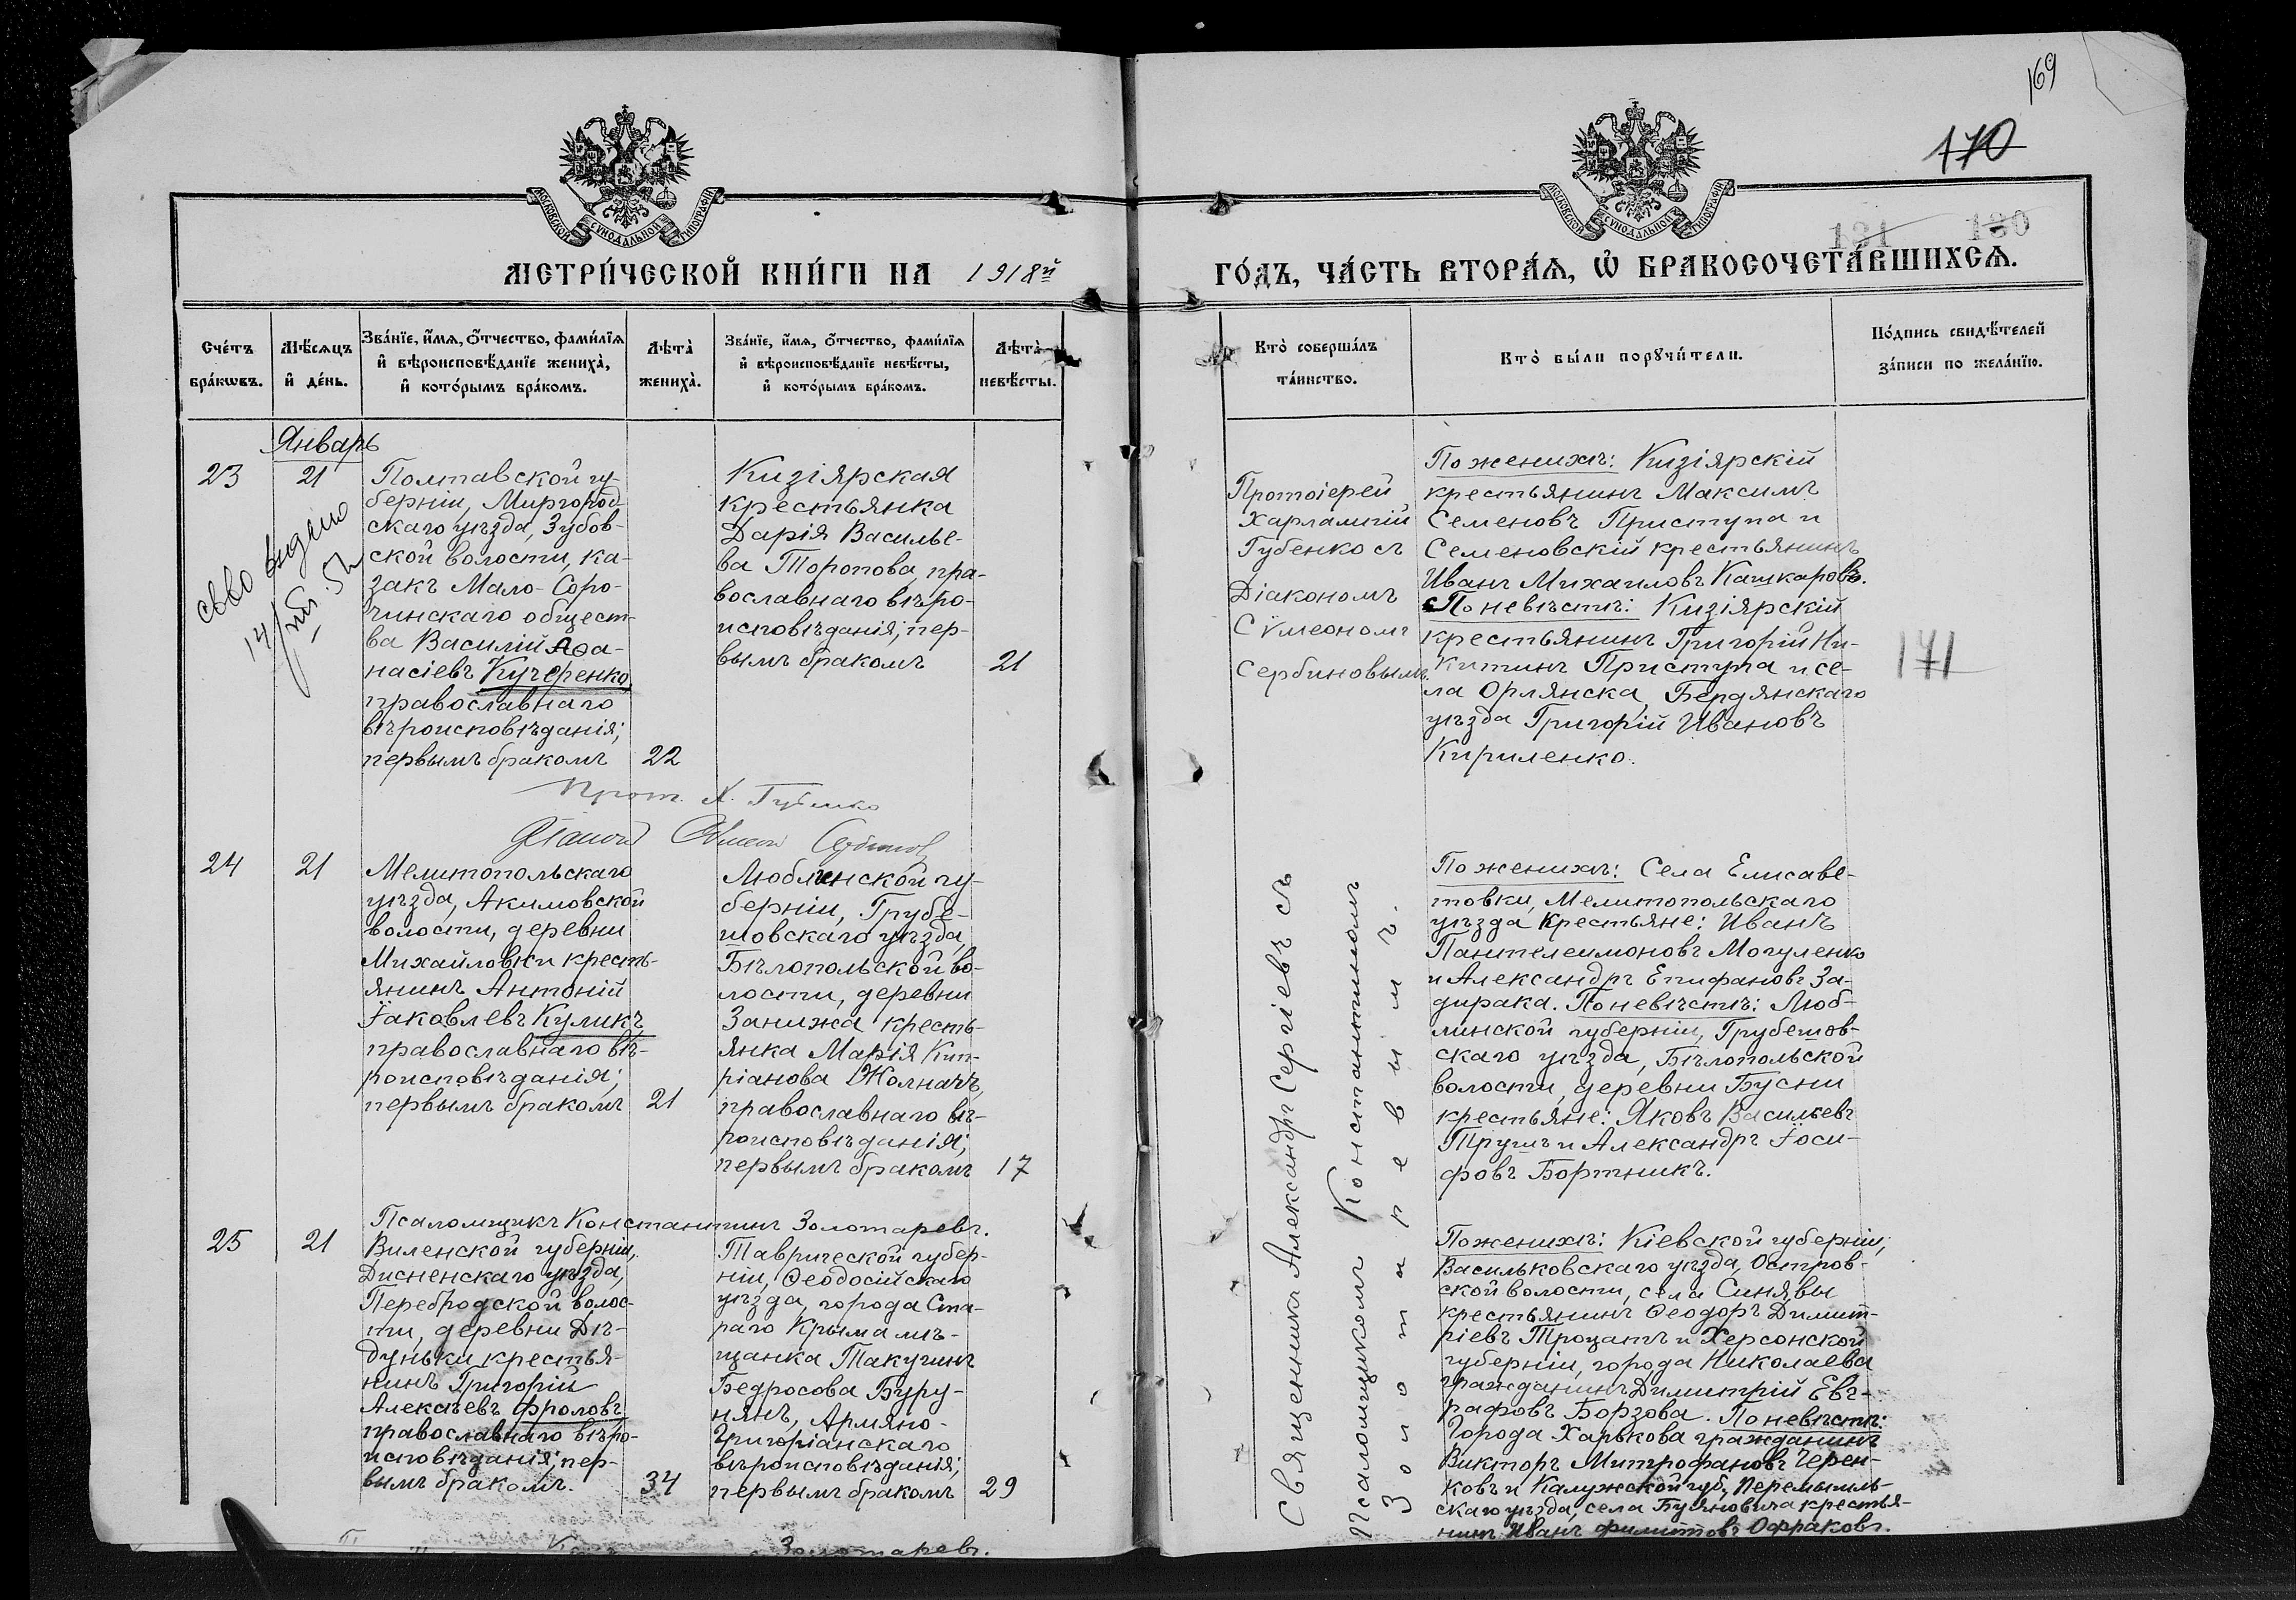 169
170
131 130
МОСКОВСКОЙ СѴНОДАЛЬНОЙ ТИПОГРАФІИ
МОСКОВСКОЙ СѴНОДАЛЬНОЙ ТИПОГРАФІИ
МЕТРИ́ЧЕСКОЙ КНИ́ГИ НА 1918й
ГО́ДЪ, ЧА́СТЬ ВТОРА́Ѧ, Ѽ БРАКОСОЧЕТА́ВШИХСѦ.
Сче́тъ бра́кѡвъ.
Мѣ́сѧцъ и҆ де́нь.
Зва́нїе, и҆́мѧ, ѻ҆́тчество, фами́лїѧ
и҆ вѣроисповѣ́данїе жениха̀,
и҆ кото́рымъ бра́комъ.
Лѣта̀ жениха̀.
Зва́нїе, и҆́мѧ, ѻ҆́тчество, фами́лїѧ
и҆ вѣроисповѣ́данїе невѣ́сты,
и҆ кото́рымъ бра́комъ.
Лѣта̀ невѣ́сты.
Кто̀ соверша́лъ
та́инство.
Кто̀ бы́ли порꙋчи́тели.
По́дпись свидѣ́телей
за́писи по жела́нїю.
Январь
23
21
Полтавской гу-
берніи, Миргород-
скаго уѣзда, Зубов-
ской волости, ка-
закъ Мало-Соро-
чинскаго общест-
ва Василій Аѳа-
насіевъ Кучеренко,
православнаго
вѣроисповѣданія;
первымъ бракомъ
22
Кизіярская
крестьянка
Дарія Василье-
ва Торопова, пра-
вославнаго вѣро-
исповѣданія; пер-
вымъ бракомъ
21
Протоіерей
Харлампій
Губенко съ
Діакономъ
Сѵмеономъ
Сербиновымъ.
По женихѣ: Кизіярскій
крестьянинъ Максимъ
Семеновъ Приступа и
Семеновскій крестьянинъ
Иванъ Михаиловъ Кашкаровъ.
По невѣстѣ: Кизіярскій
крестьянинъ Григорій Ни-
китинъ Приступа и се-
ла Орлянска, Бердянскаго
уѣзда Григорій Ивановъ
Кириленко.
171
Прот. Х. Губенко
Діаконъ Сѵмеон Сербинов
24
21
Мелитопольскаго
уѣзда, Акимовской
волости, деревни
Михайловки кресть-
янинъ Антоній
Іаковлевъ Куликъ,
православнаго вѣ-
роисповѣданія;
первымъ бракомъ
21
Люблинской гу-
берніи, Грубе-
шовскаго уѣзда,
Бѣлопольской во-
лости, деревни
Занижа кресть-
янка Марія Кип-
ріанова Жолначъ,
православнаго вѣ-
роисповѣданія;
первымъ бракомъ
17
Священникъ Александръ Сергіевъ съ
Псаломщикомъ Константиномъ
Золотаревымъ.
По женихѣ: Села Елисаве-
товки, Мелитопольскаго
уѣзда крестьяне: Иванъ
Пантелеимоновъ Могуленко
и Александръ Епифановъ За-
дирака. По невѣстѣ: Люб-
линской губерніи, Грубешов-
скаго уѣзда, Бѣлопольской
волости, деревни Бусни
крестьяне: Яковъ Васильевъ
Трушъ и Александръ Іоси-
фовъ Бортникъ.
Псаломщикъ Константинъ Золотаревъ.
25
21
Виленской губерніи,
Дисненскаго уѣзда,
Перебродской волос-
ти, деревни Дѣ-
дуньки крестья-
нинъ Григорій
Алексѣевъ Фроловъ,
православнаго вѣро-
исповѣданія; пер-
вымъ бракомъ.
34
Таврической губер-
ніи, Ѳеодосійскаго
уѣзда, города Ста-
раго Крыма мѣ-
щанка Такугинъ
Бедросова Буру-
нянъ, Армяно-
Григоріанскаго
вѣроисповѣданія;
первымъ бракомъ
29
По женихѣ: Кіевской губерніи,
Васильковскаго уѣзда, Остров-
ской волости, села Синявы
крестьянинъ Ѳеодоръ Димит-
ріевъ Троцатъ и Херсонской
губерніи, города Николаева
гражданинъ Димитрій Евг-
рафовъ Борзова. По невѣстѣ:
Города Харькова гражданинъ
Викторъ Митрофановъ Черен-
ковъ и Калужской губ., Перемышль-
скаго уѣзда, села крестья-
нинъ Иванъ Филиповъ Офраковъ.
Золотаревъ.